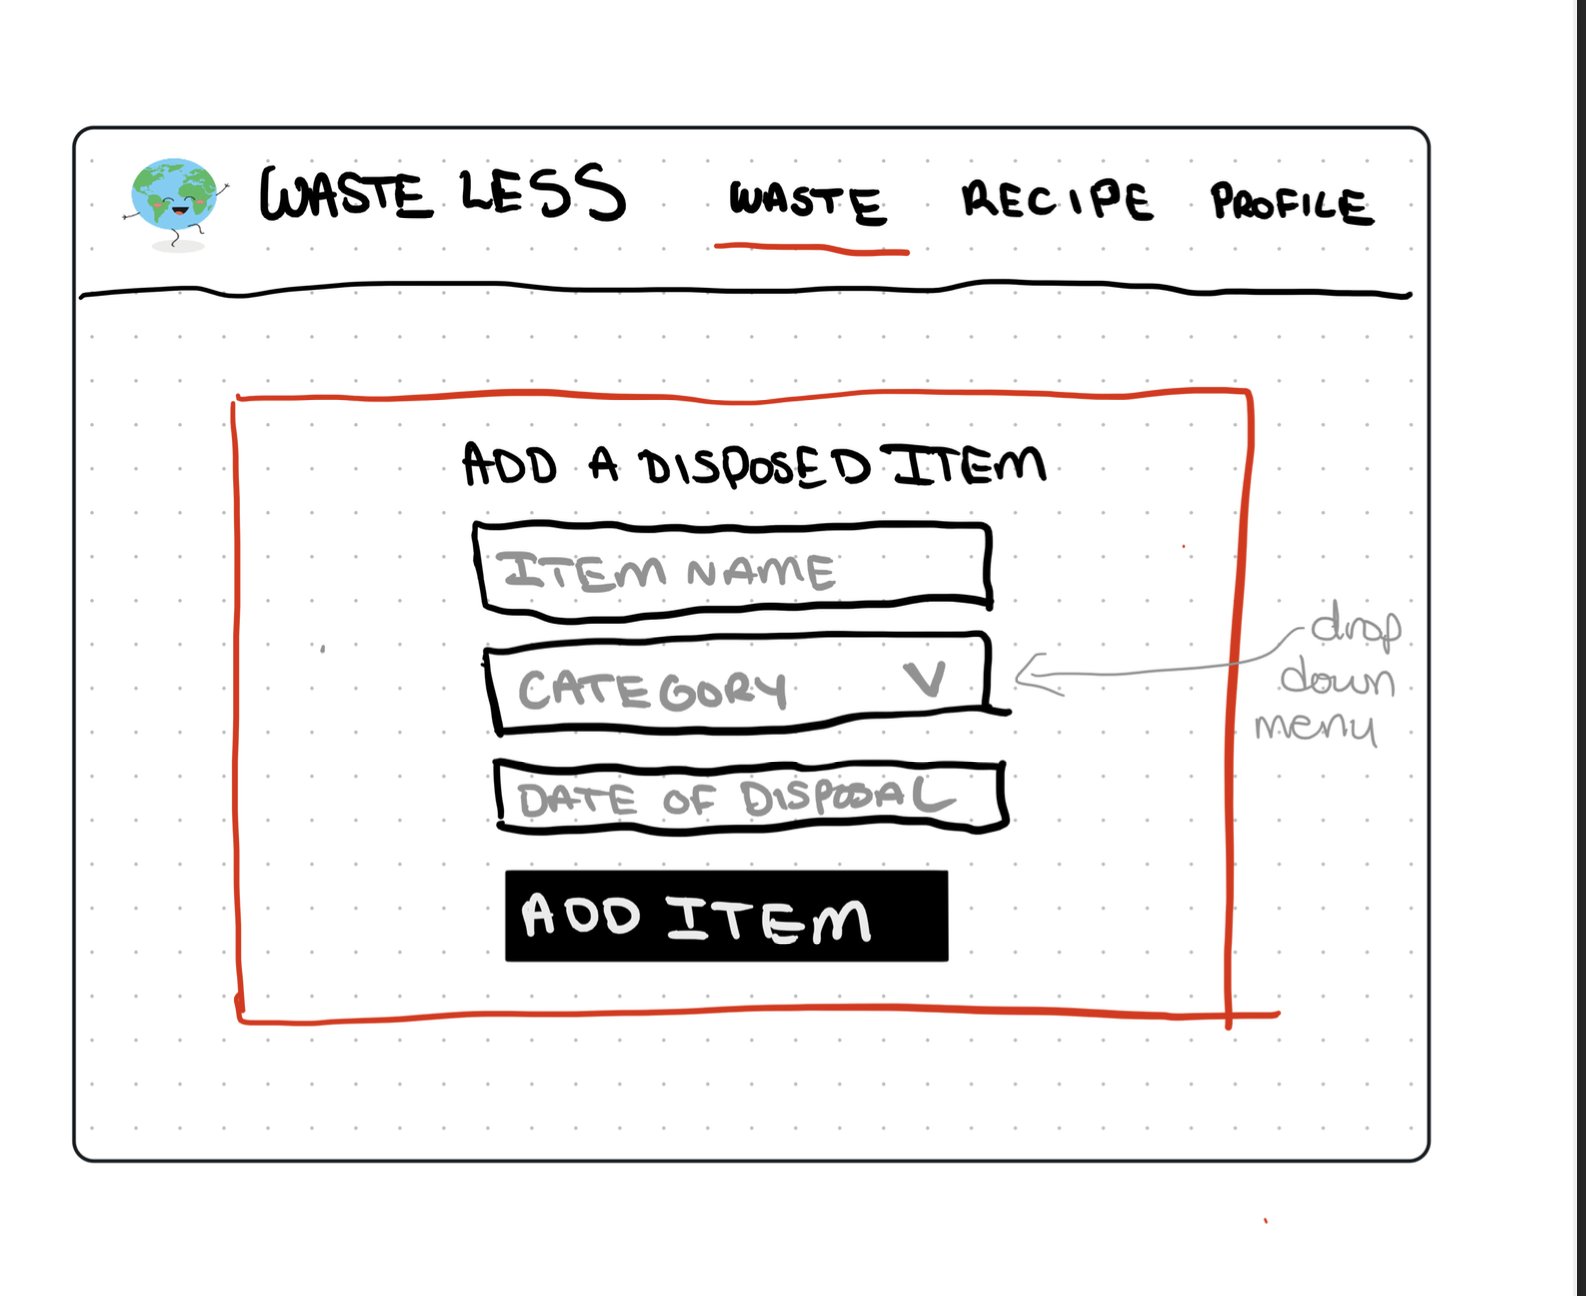 WASTE LESS WASTE RECIPE PROFILE
ADD A DISPOSED ITEM
ITEM NAME
CATEGORY V
drop
down
menu
DATE OF DISPOSAL
ADD ITEM